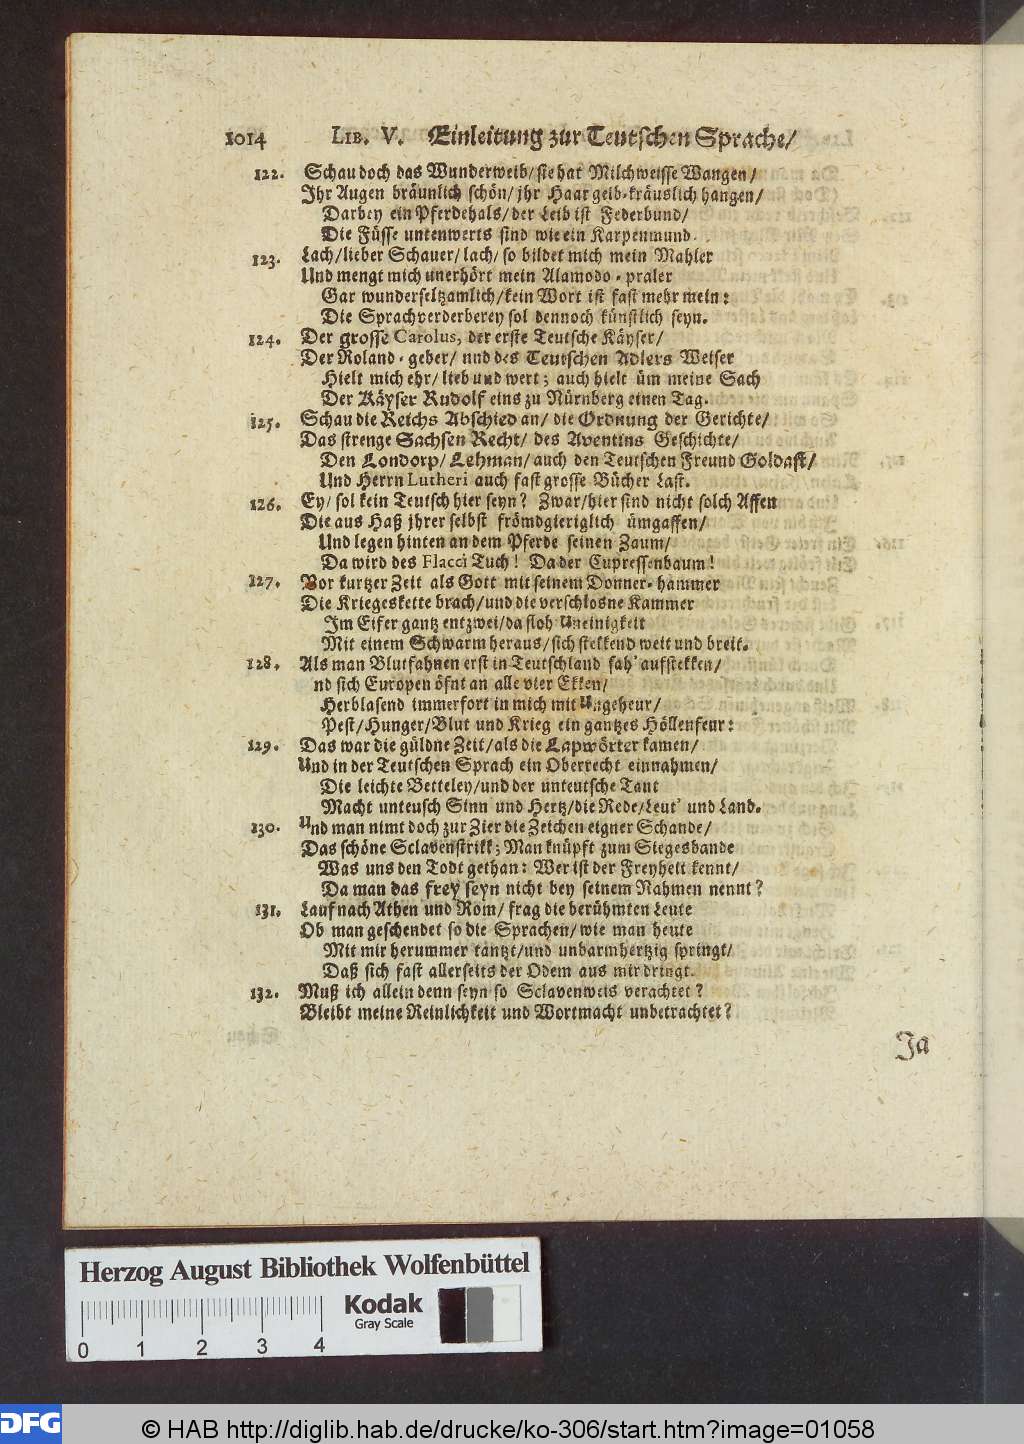 1014 LIB. V. Einleitung zur Teutschen Sprache/
122. Schau doch das Wunderweib/ sie hat Milchweisse Wangen/
Ihr Augen bräunlich schön/ jhr Haar gelb-kräuslich hangen/
Darbey ein Pferdehals/ der Leib ist Federbund/
Die Füsse untenwerts sind wie ein Karpenmund.
123. Lach/ lieber Schauer/ lach/ so bildet mich mein Mahler
Und mengt mich unerhört mein Alamodo-praler
Gar wunderseltzamlich/ kein Wort ist fast mehr mein:
Die Sprachverderberey sol dennoch künstlich seyn.
124. Der grosse Carolus, der erste Teutsche Käyser/
Der Roland-geber/ und des Teutschen Adlers Weiser
Hielt mich ehr/ lieb und wert; auch hielt üm meine Sach
Der Käyser Rudolf eins zu Nürnberg einen Tag.
125. Schau die Reichs Abschied an/ die Ordnung der Gerichte/
Das strenge Sachsen Recht/ des Aventins Geschichte/
Den Londorp/ Lehman/ auch den Teutschen Freund Goldast/
Und Herrn Lutheri auch fast grosse Bücher Last.
126. Ey/ sol kein Teutsch hier seyn? Zwar/ hier sind nicht solch Affen
Die aus Haß jhrer selbst frömdgieriglich ümgaffen/
Und legen hinten an dem Pferde seinen Zaum/
Da wird des Flacci Tuch! Da der Cupressenbaum!
127. Vor kurtzer Zeit als Gott mit seinem Donner-hammer
Die Kriegeskette brach/ und die verschlosne Kammer
Im Eifer gantz entzwei/ da floh Uneinigkeit
Mit einem Schwarm heraus/ sich stelkend weit und breit.
128. Als man Blutfahnen erst in Teutschland sah' aufstekken/
nd sich Europen öfnt an alle vier Ekken/
Herblasend immerfort in mich mit Ungeheur/
Pest/ Hunger/ Blut und Krieg ein gantzes Höllenfeur:
129. Das war die güldne Zeit/ als die Lapwörter kamen/
Und in der Teutschen Sprach ein Oberrecht einnahmen/
Die leichte Betteley/ und der unteutsche Tant
Macht unteusch Sinn und Hertz/ die Rede/ Leut' und Land.
130. Und man nimt doch zur Zier die Zeichen eigner Schande/
Das schöne Sclavenstrikk; Man knüpft zum Siegesbande
Was uns den Todt gethan: Wer ist der Freyheit kennt/
Da man das frey seyn nicht bey seinem Nahmen nennt?
131. Lauf nach Athen und Rom/ frag die berühmten Leute
Ob man geschendet so die Sprachen/ wie man heute
Mit mir herummer tantzt/ und unbarmhertzig springt/
Daß sich fast allerseits der Odem aus mir dringt.
132. Muß ich allein denn seyn so Sclavenweis verachtet?
Bleibt meine Reinlichkeit und Wortmacht unbetrachtet?
Ja
Herzog August Bibliothek Wolfenbüttel
Kodak
Gray Scale
0 1 2 3 4
DFG © HAB http://diglib.hab.de/drucke/ko-306/start.htm?image=01058